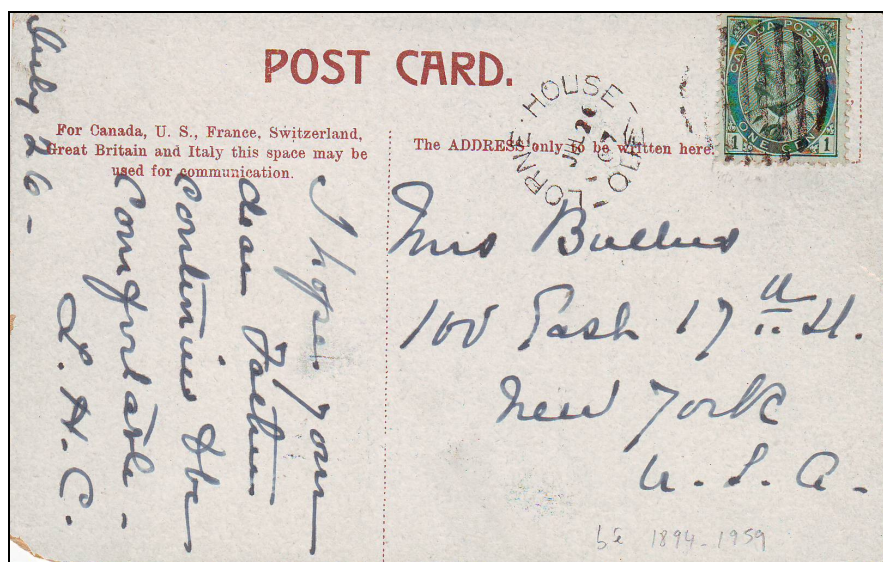 POST CARD.
For Canada, U. S., France, Switzerland,
Great Britain and Italy this space may be
used for communication.
The ADDRESS only to be written here.
LORNE HOUSE QUE
JUL 26
07
CANADA POSTAGE
ONE CENT
1 1
July 26 -
I hope your
dear Father
continues to be
Comfortable -
L. H. C.
Mrs Bullus
100 East 17th St.
New York
U. S. A.
1894-1959